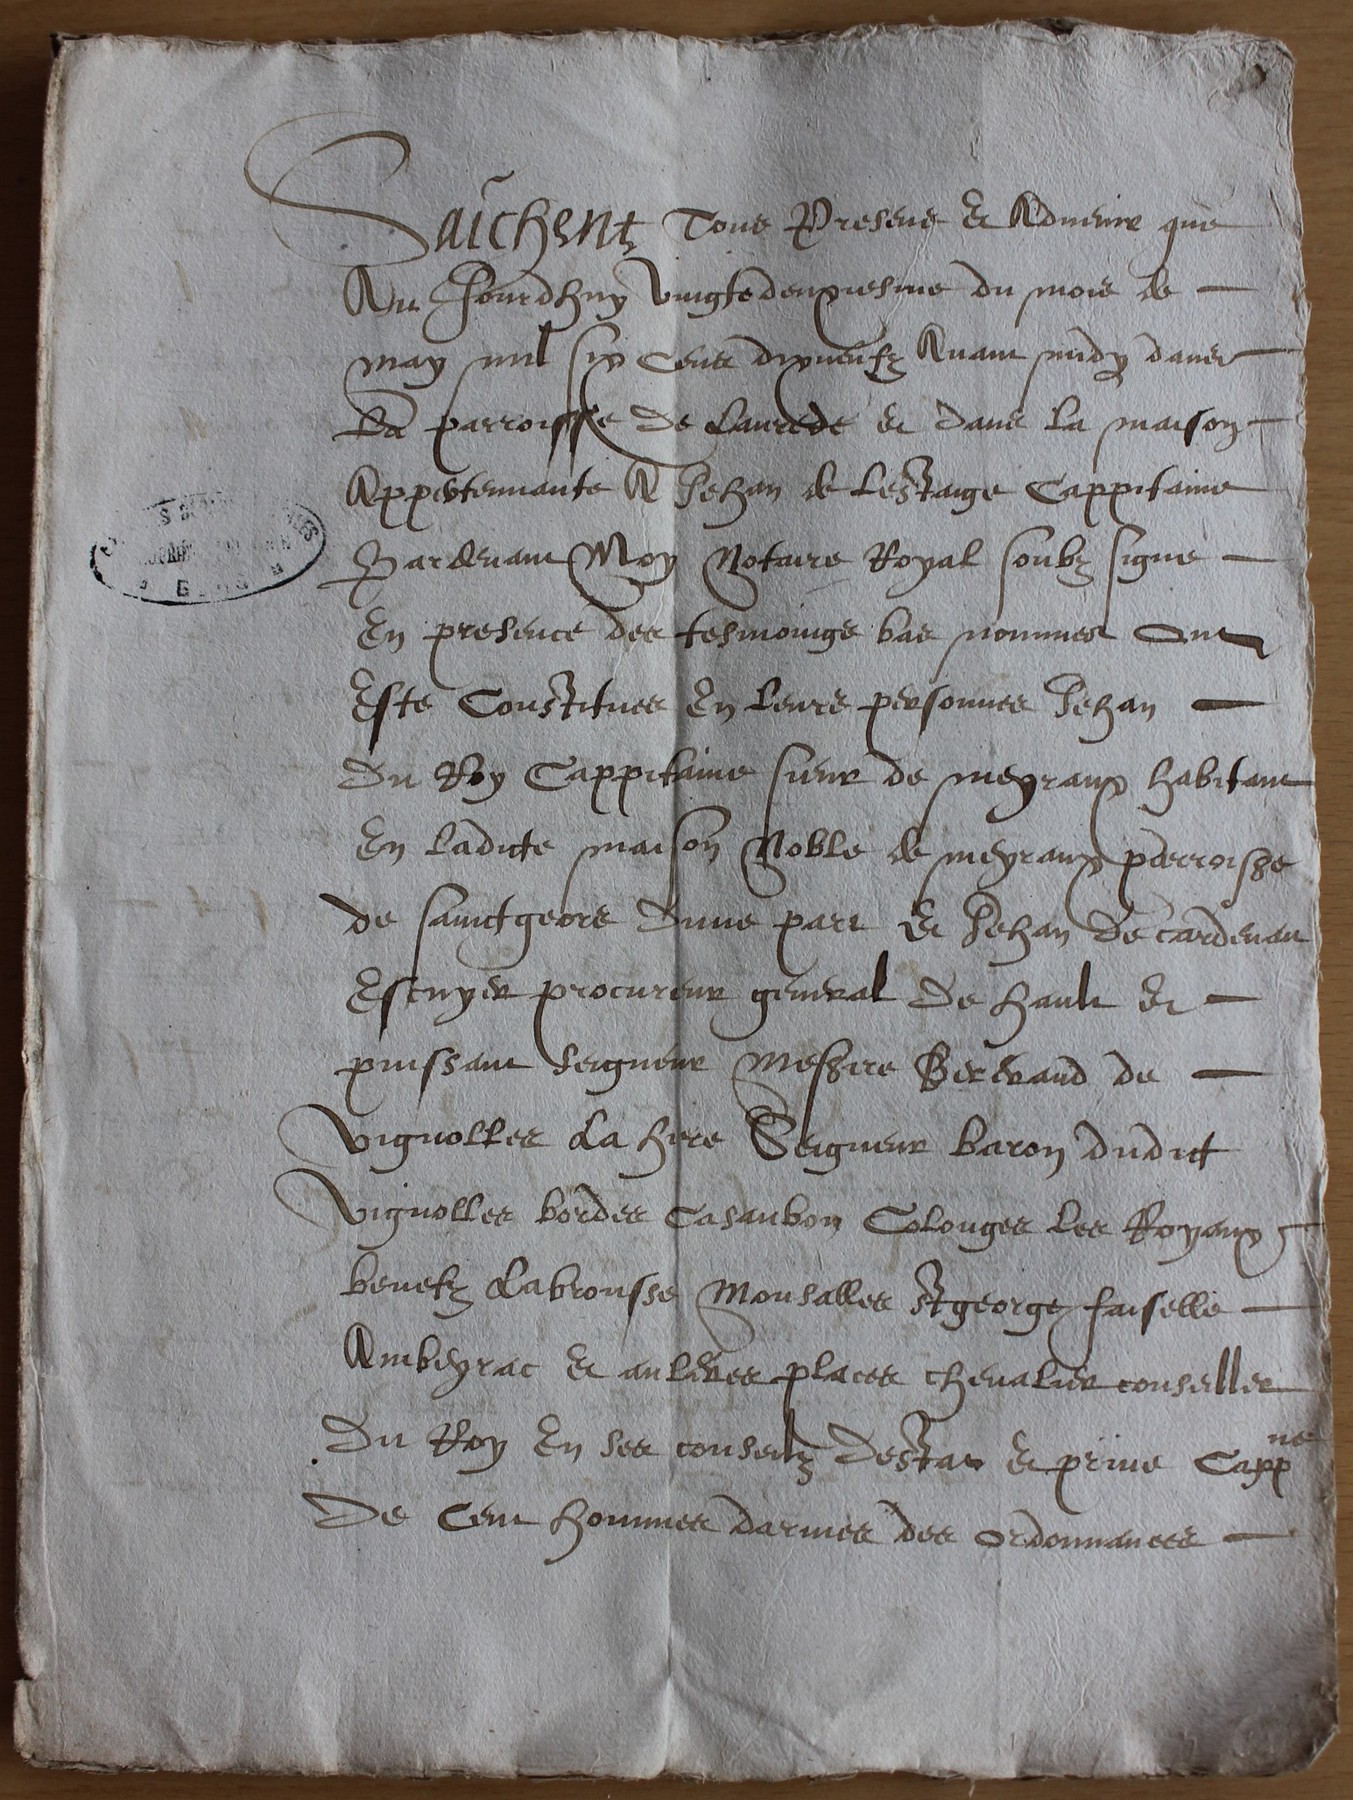 Saichent Tous Presens et Advenir que
Au Jourdhuy Vingtedeuxiesme du mois de
may mil six Cens dixneufz Avant midy dans
La parroisse de Laurede et dans la maison
Appertennante A Jehan de Lestaige Cappitaine
Pardevant Moy Notaire Royal soubz signe
En presence des tesmoings bas nommes Ont
Este Constitues En leurs personnes Jehan
Du Roy Cappitaine sieur de meyranx habitant
En ladicte maison Noble de meyranx parroisse
de sainctgeors Dune part et Jehan De cardenau
Escuyer procureur general De hault et
puissant seigneur Messire Bertrand de
Vignolles La hire Seigneur baron dudict
Vignolles bordes Casaubon Colonges les Royaux
benetz Labrousse Monsalles St george faiselle
Ambeyrac et aultres places chevalier conseller
Du Roy En ses conseilz Destat et prive Cappne
De Cent hommes darmes des ordonnances